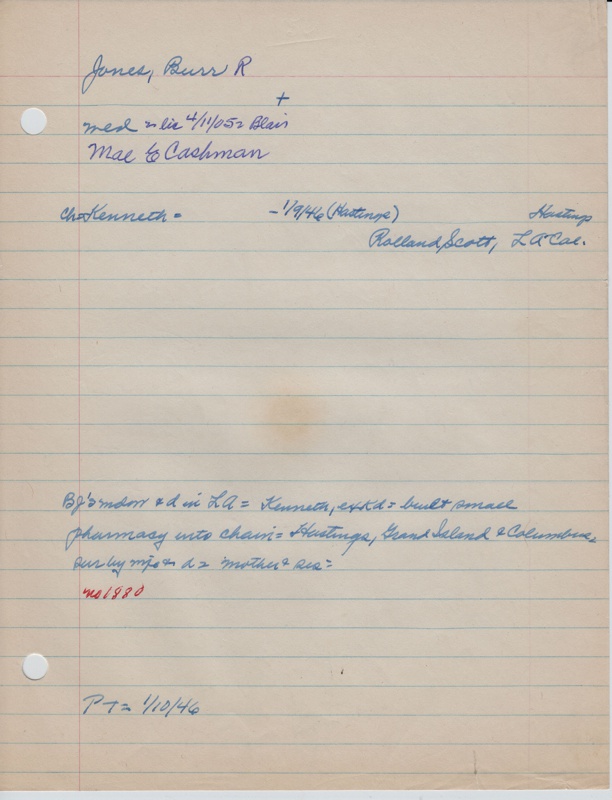 Jones, Burr R
+
med = lic 4/11/05 = Blair
Mae E Cashman
Ch = Kenneth = - 1/9/46 (Hastings) Hastings
Rolland Scott, LA Cal.
BJ's widow & d in LA = Kenneth, = built small
pharmacy into chain = Hastings, Grand Island & Columbus =
sur by & d = mother & sis =
no 1880
PT = 1/10/46